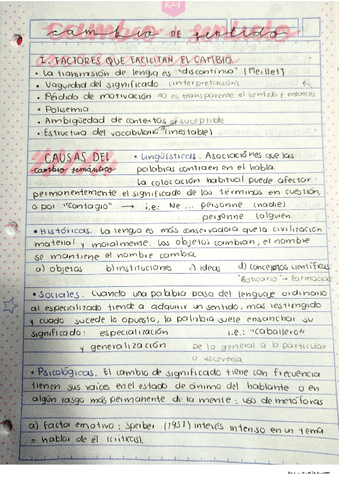 cambio de sentido
1. FACTORES QUE FACILITAN EL CAMBIO
• La transmisión de lengua es "discontinua" (Meillet)
• Vaguedad del significado (interpretación)
• Pérdida de motivación no es transparente el sentido y entonces
• Polisemia
• Ambigüedad de contextos susceptible
• Estructura del vocabulario (inestable)
CAUSAS DEL
cambio semántico
• Lingüísticas. Asociaciones que las
palabras contraen en el habla.
La colocación habitual puede afectar
permanentemente el significado de los términos en cuestión,
o por "contagio" → i.e: Ne ... personne (nadie)
personne (alguien.
• Históricas. La lengua es más conservadora que la civilización
material y moralmente. Los objetos cambian, el nombre
se mantiene el nombre cambia.
a) objetos b) instituciones c) ideas d) conceptos científicos
"Boticario" → farmacia
• Sociales. Cuando una palabra pasa del lenguaje ordinario
al especializado tiende a adquirir un sentido, más restringido
y cuado sucede lo opuesto, la palabra suele ensanchar su
significado: especialización i.e.: "caballero"
y generalización De lo general a lo particular
o viceversa.
• Psicológicas. El cambio de significado tiene con frecuencia
tienen sus raíces en el estado de ánimo del hablante o en
algún rasgo más permanente de la mente: uso de metáforas
a) Factor emotivo: Sperber (1931) interés intenso en un tema
= hablar de él (críticas).